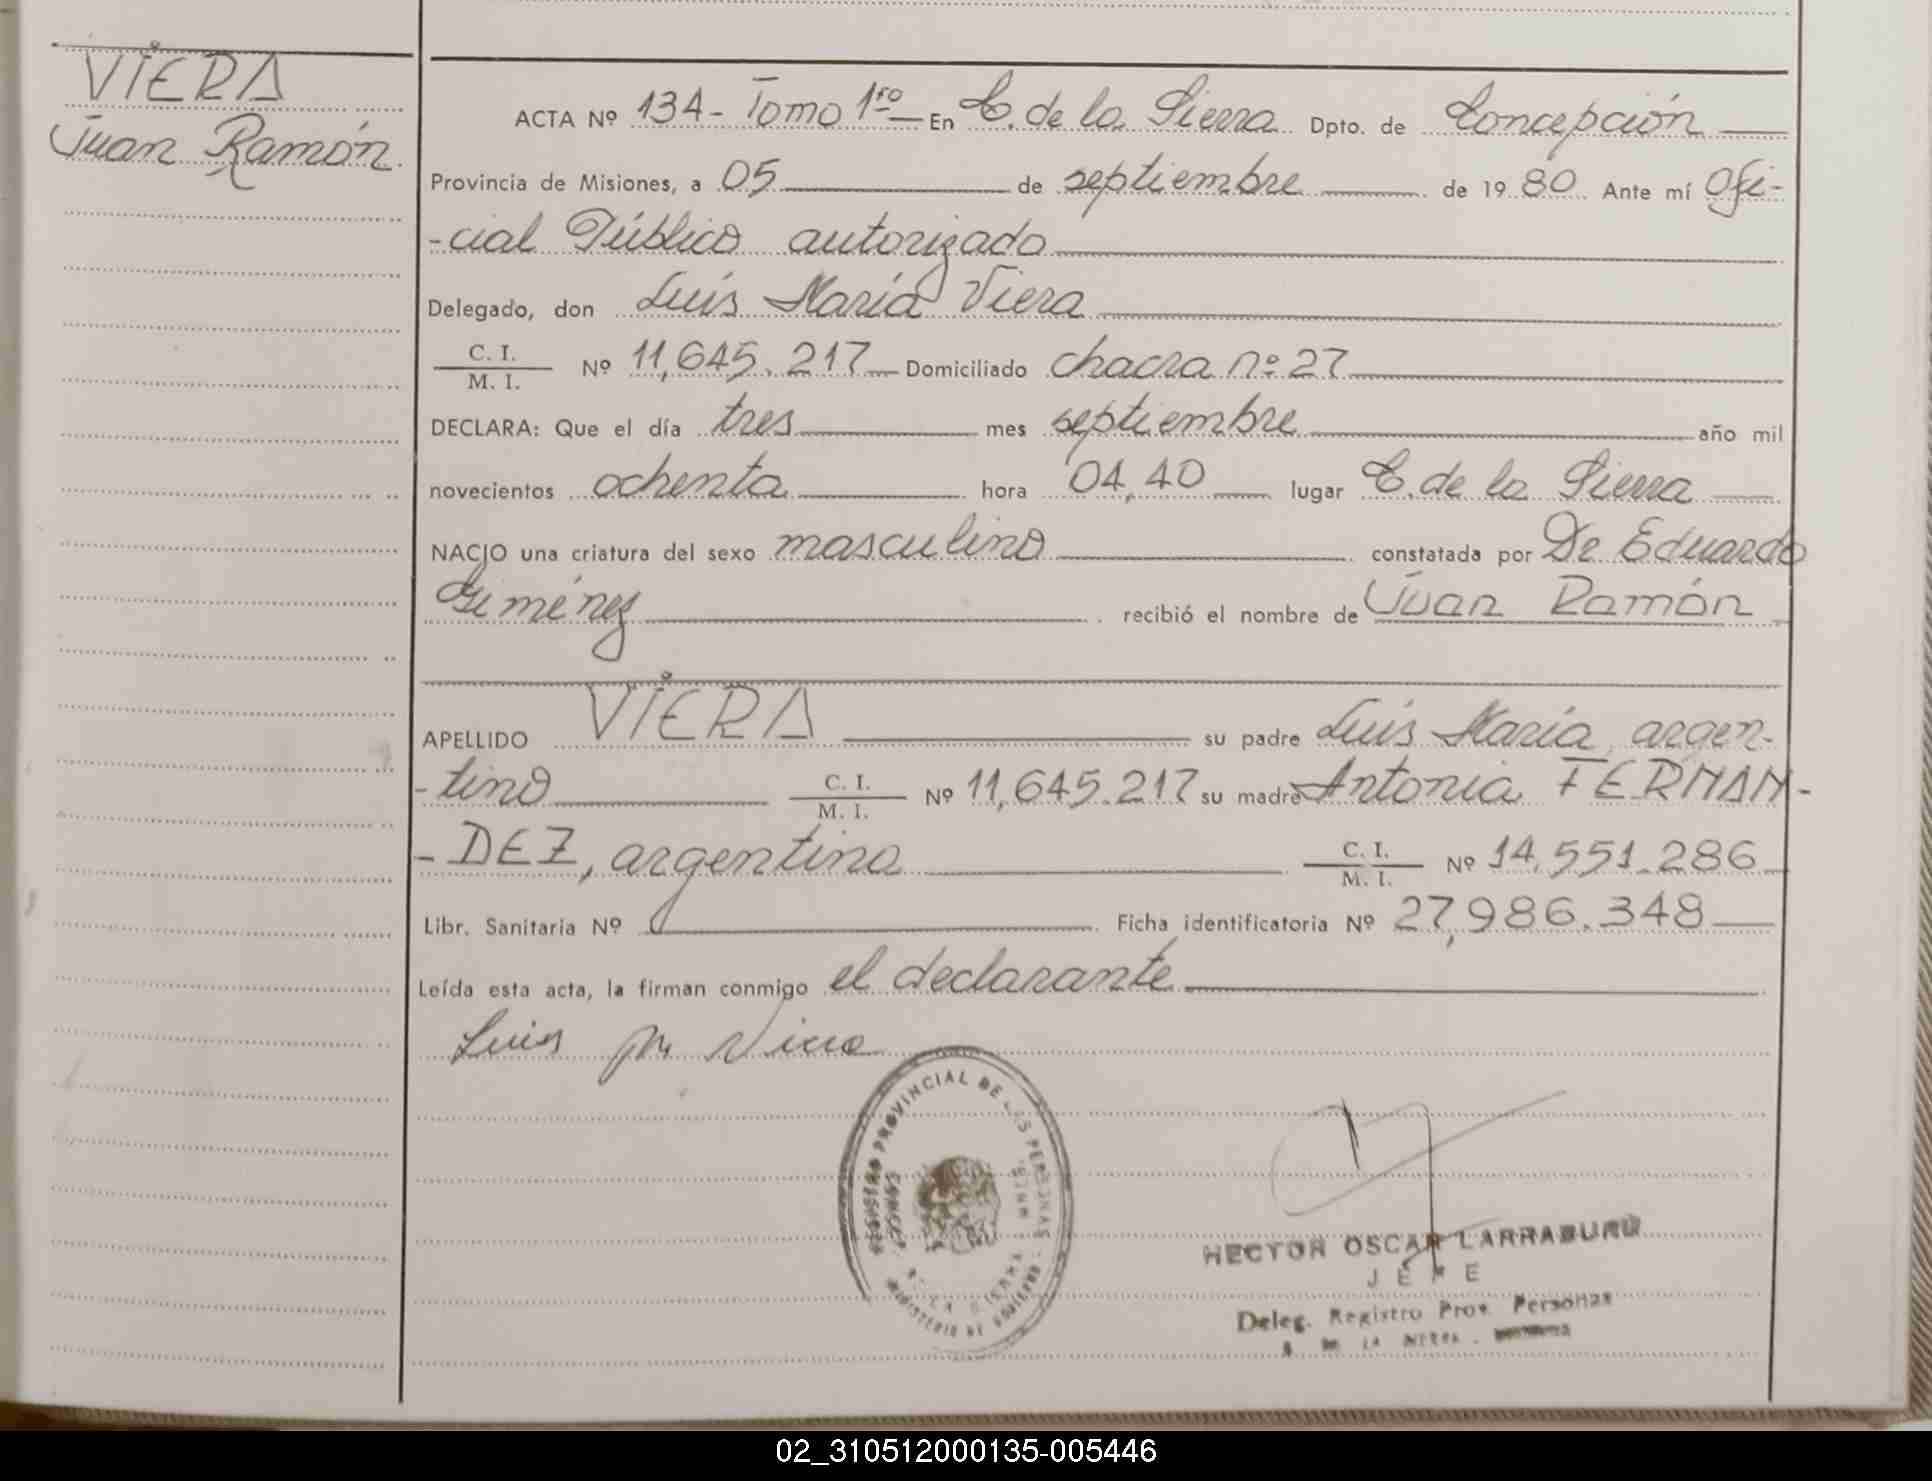 VIERA
Juan Ramón.
ACTA Nº 134 - Tomo 1ro — En C. de la Sierra Dpto. de Concepción —
Provincia de Misiones, a 05 — de septiembre — de 1980 Ante mí Ofi-
-cial Público autorizado
Delegado, don Luis María Viera
C. I. / M. I. Nº 11,645.217 — Domiciliado chacra nº 27
DECLARA: Que el día tres — mes septiembre — año mil
novecientos ochenta — hora 04,40 — lugar C. de la Sierra —
NACIO una criatura del sexo masculino — constatada por Dr Eduardo
Giménez — recibió el nombre de Juan Ramón
APELLIDO VIERA — su padre Luis María, argen-
-tino — C. I. / M. I. Nº 11,645.217 su madre Antonia FERNAN-
-DEZ, argentina — C. I. / M. I. Nº 14,551.286
Libr. Sanitaria Nº — Ficha identificatoria Nº 27,986.348 —
Leída esta acta, la firman conmigo el declarante
Luis M Viera
REGISTRO PROVINCIAL DE LAS PERSONAS
MINISTERIO DE GOBIERNO
LA SIERRA
HECTOR OSCAR LARRABURU
JEFE
Deleg. Registro Prov. Personas
DE LA SIERRA -
02_310512000135-005446